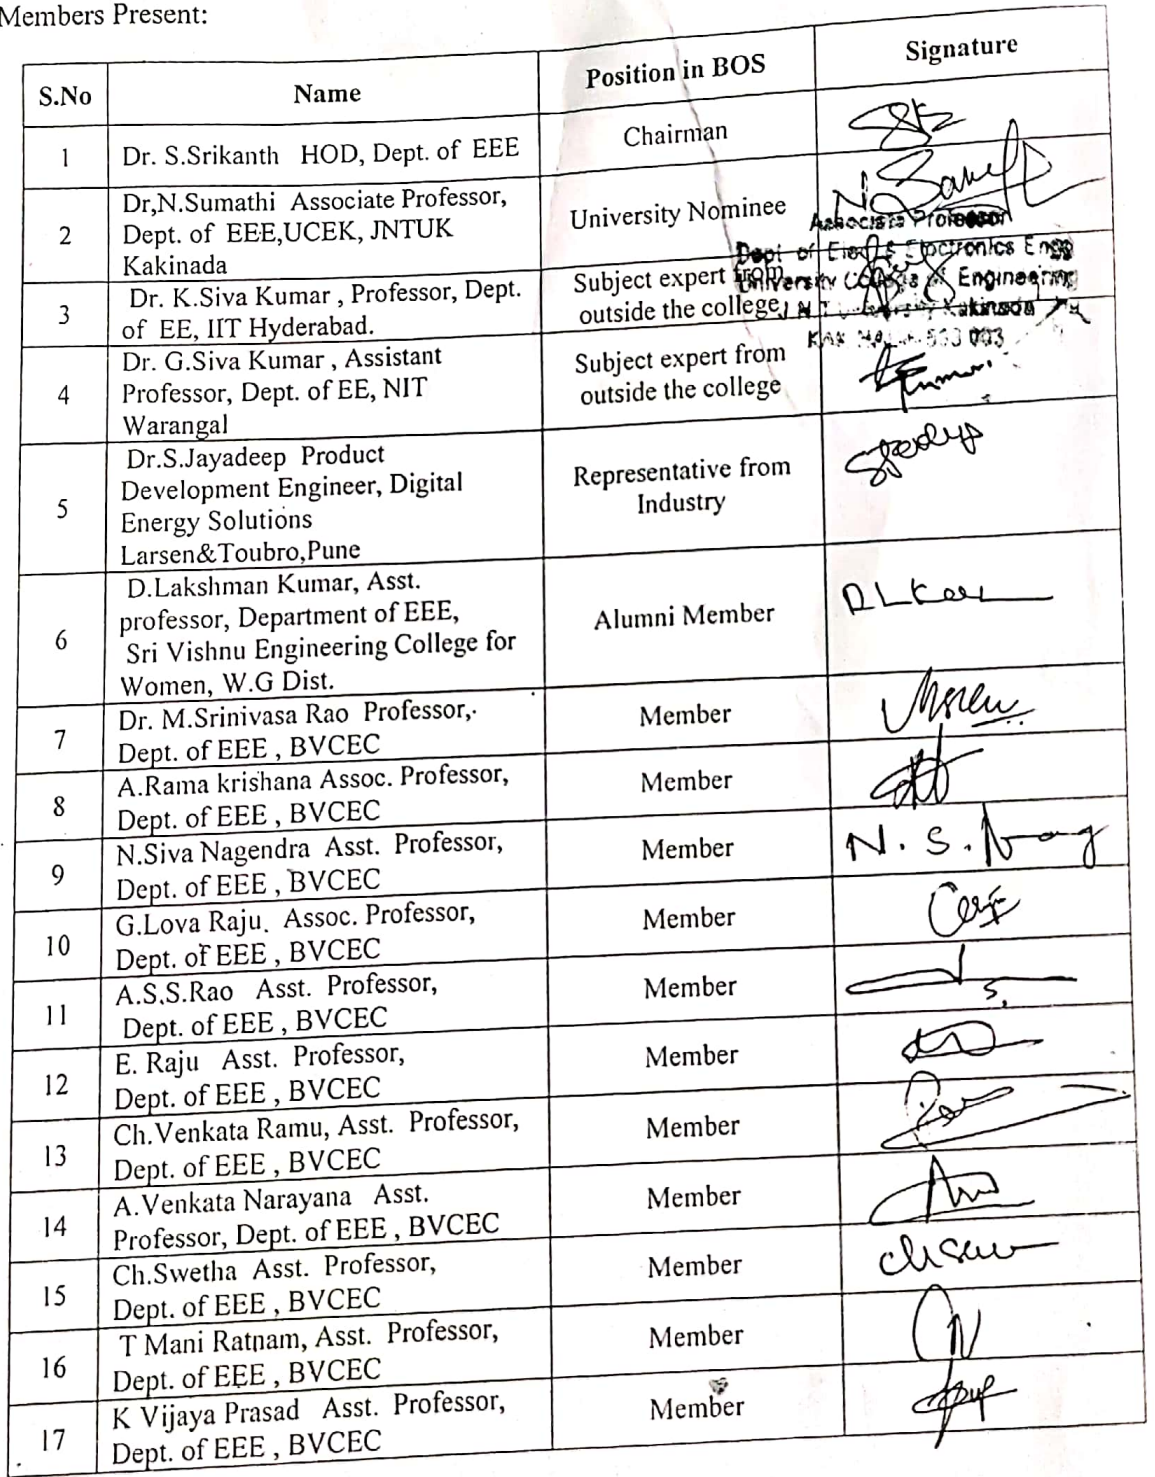 Members Present:
S.No Name Position in BOS Signature
1 Dr. S.Srikanth HOD, Dept. of EEE Chairman
2 Dr,N.Sumathi Associate Professor, Dept. of EEE,UCEK, JNTUK Kakinada University Nominee
Associate Professor
Dept of Elec & Electronics Engg
University College of Engineering
KAKINADA-533 003
3 Dr. K.Siva Kumar , Professor, Dept. of EE, IIT Hyderabad. Subject expert from outside the college
4 Dr. G.Siva Kumar , Assistant Professor, Dept. of EE, NIT Warangal Subject expert from outside the college
5 Dr.S.Jayadeep Product Development Engineer, Digital Energy Solutions Larsen&Toubro,Pune Representative from Industry
6 D.Lakshman Kumar, Asst. professor, Department of EEE, Sri Vishnu Engineering College for Women, W.G Dist. Alumni Member
7 Dr. M.Srinivasa Rao Professor, Dept. of EEE , BVCEC Member
8 A.Rama krishana Assoc. Professor, Dept. of EEE , BVCEC Member
9 N.Siva Nagendra Asst. Professor, Dept. of EEE , BVCEC Member N. S. Nag
10 G.Lova Raju. Assoc. Professor, Dept. of EEE , BVCEC Member
11 A.S.S.Rao Asst. Professor, Dept. of EEE , BVCEC Member
12 E. Raju Asst. Professor, Dept. of EEE , BVCEC Member
13 Ch.Venkata Ramu, Asst. Professor, Dept. of EEE , BVCEC Member
14 A.Venkata Narayana Asst. Professor, Dept. of EEE , BVCEC Member
15 Ch.Swetha Asst. Professor, Dept. of EEE , BVCEC Member
16 T Mani Ratnam, Asst. Professor, Dept. of EEE , BVCEC Member
17 K Vijaya Prasad Asst. Professor, Dept. of EEE , BVCEC Member